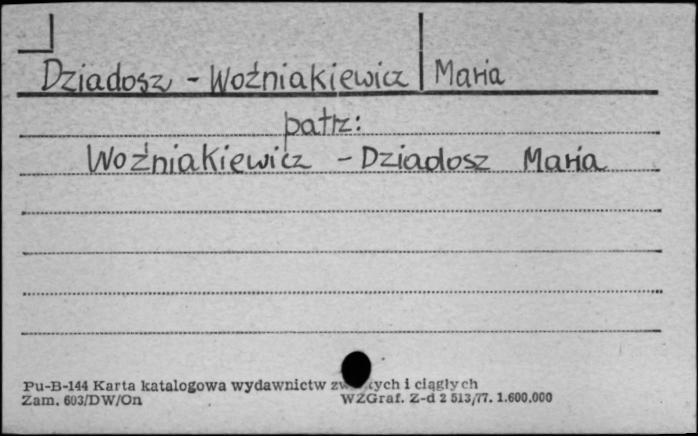 Dziadosz - Woźniakiewicz Maria
patrz:
Woźniakiewicz - Dziadosz Maria
Pu-B-144 Karta katalogowa wydawnictw i ciągłych
Zam. 603/DW/On WZGraf. Z-d 2 513/77. 1.600.000